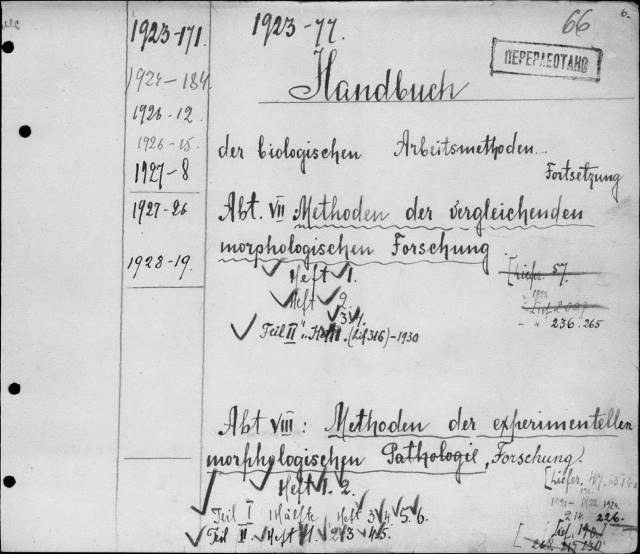 1923-171.
1924-184
1926-12
1926-15.
1927-8
1927-26
1928-19.
1923-77.
66
6.
ПЕРЕРАБОТАНО
Handbuch
der biologischen Arbeitsmethoden...
Fortsetzung
Abt. VII Methoden der vergleichenden
morphologischen Forschung
Heft 1.
[Liefer. 57.
Heft 2.
3. 4.
- " 236. 265
Teil II Heft 1. (Lief 316)-1930
Abt VIII: Methoden der experimentellen
morphologischen Pathologie, Forschung.
Heft 1. 2.
[Liefer.
Teil I Hälfte Heft 3. 4. 5. 6.
214 226.
Teil II. Heft 1. 2. 3. 4. 5.